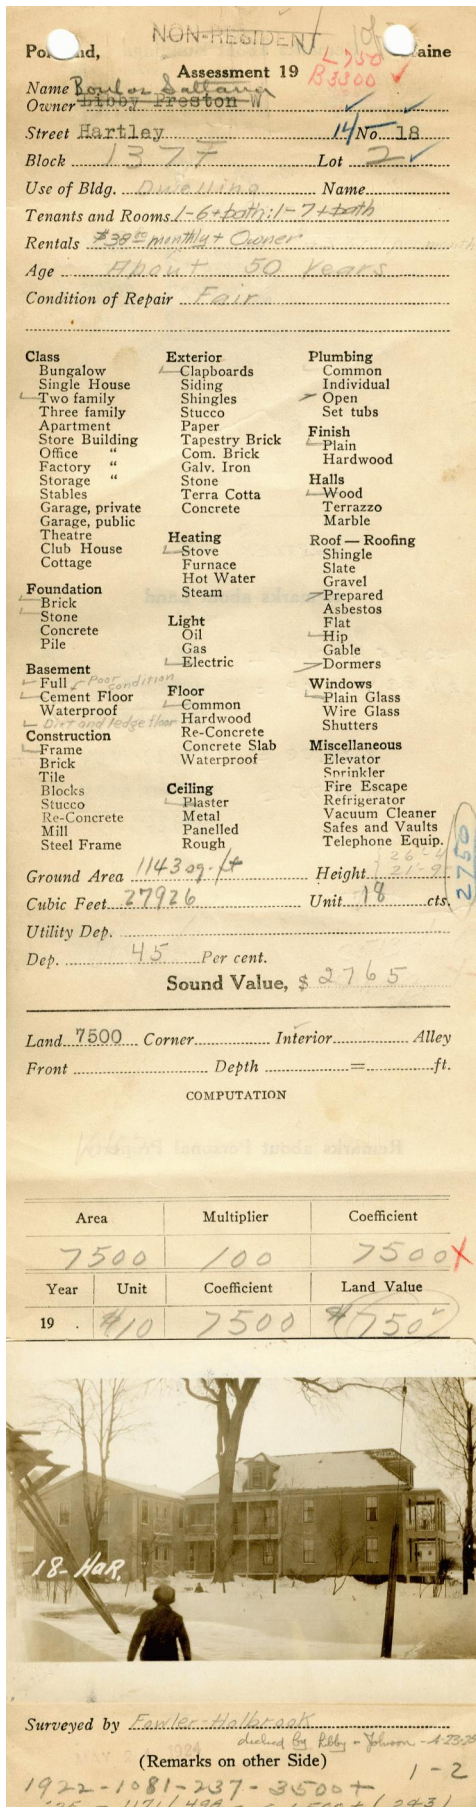 NON-RESIDENT
Portland, Maine
Assessment 19
L 750
B 3300
Name Boulos Sultana
Owner Libby Preston W
Street Hartley 14 No. 18
Block 137F Lot 2
Use of Bldg. Dwelling Name
Tenants and Rooms 1-6+bath: 1-7+bath
Rentals $38.00 monthly + Owner
Age About 50 Years
Condition of Repair Fair
Class
Bungalow
Single House
Two family
Three family
Apartment
Store Building
Office "
Factory "
Storage "
Stables
Garage, private
Garage, public
Theatre
Club House
Cottage
Foundation
Brick
Stone
Concrete
Pile
Basement
Full Poor condition
Cement Floor
Waterproof
Dirt and ledge floor
Construction
Frame
Brick
Tile
Blocks
Stucco
Re-Concrete
Mill
Steel Frame
Exterior
Clapboards
Siding
Shingles
Stucco
Paper
Tapestry Brick
Com. Brick
Galv. Iron
Stone
Terra Cotta
Concrete
Heating
Stove
Furnace
Hot Water
Steam
Light
Oil
Gas
Electric
Floor
Common
Hardwood
Re-Concrete
Concrete Slab
Waterproof
Ceiling
Plaster
Metal
Panelled
Rough
Plumbing
Common
Individual
Open
Set tubs
Finish
Plain
Hardwood
Halls
Wood
Terrazzo
Marble
Roof — Roofing
Shingle
Slate
Gravel
Prepared
Asbestos
Flat
Hip
Gable
Dormers
Windows
Plain Glass
Wire Glass
Shutters
Miscellaneous
Elevator
Sprinkler
Fire Escape
Refrigerator
Vacuum Cleaner
Safes and Vaults
Telephone Equip.
2750
Ground Area 1143 sq. ft Height 26'-4 21'-9
Cubic Feet 27926 Unit 18 cts.
Utility Dep.
Dep. 45 Per cent.
Sound Value, $ 2765
Land 7500 Corner Interior Alley
Front Depth = ft.
COMPUTATION
Area Multiplier Coefficient
7500 100 7500 X
Year Unit Coefficient Land Value
19 . $10 7500 $750
18-HAR.
Surveyed by Fowler-Holbrook
decked by Libby - Johnson - 4-23-25
(Remarks on other Side)
1-2
1922-1081-237-3500+